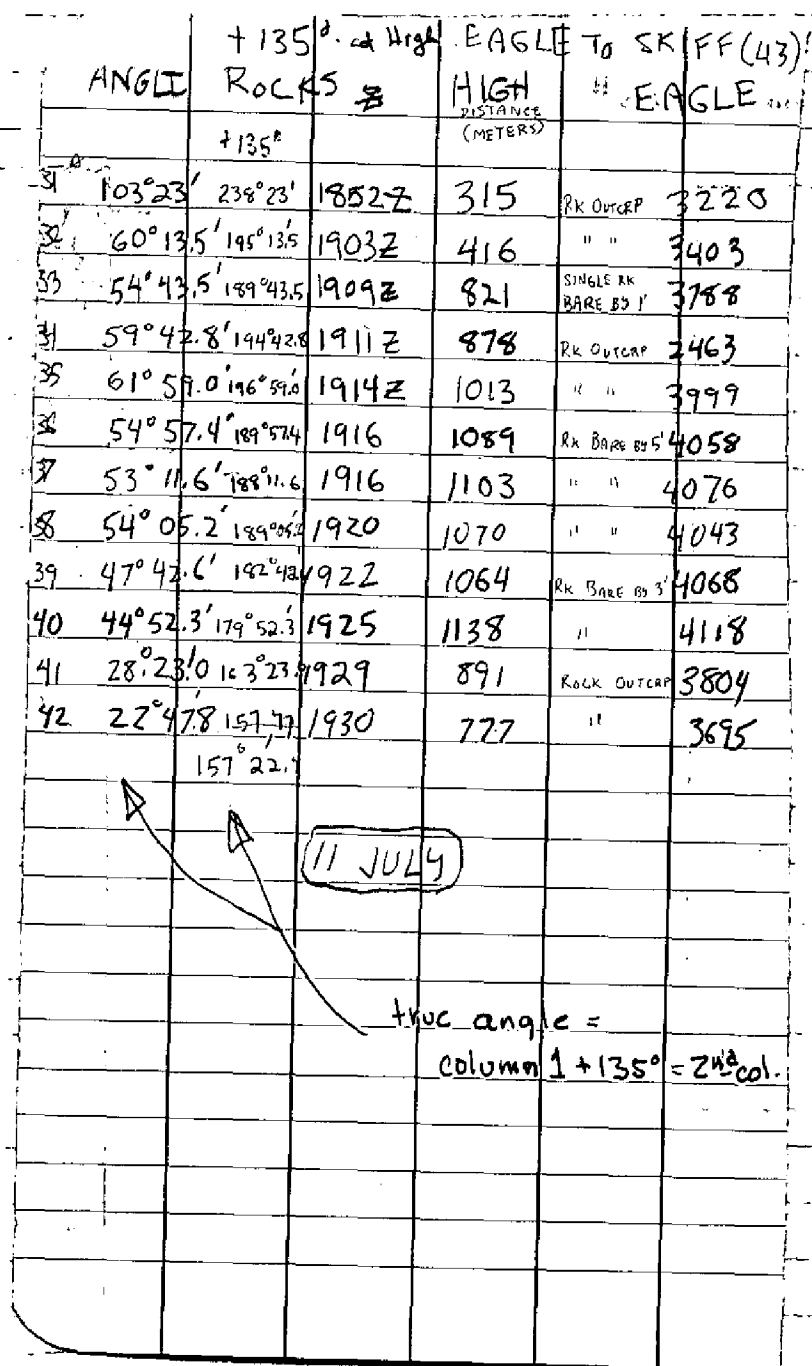 +135° at High EAGLE TO SKIFF (43)!
ANGLE ROCKS Z HIGH " EAGLE
DISTANCE
+135° (METERS)
31 103°23' 238°23' 1852Z 315 RK OUTCRP 3220
32 60°13.5' 195°13.5 1903Z 416 " " 3403
33 54°43.5' 189°43.5 1909Z 821 SINGLE RK BARE BY 1' 3788
34 59°42.8' 194°42.8 1911Z 878 RK OUTCRP 2463
35 61°59.0' 196°59.0' 1914Z 1013 " " 3999
36 54°57.4' 189°57.4 1916 1089 RK BARE BY 5' 4058
37 53°11.6' 188°11.6 1916 1103 " " 4076
38 54°05.2' 189°05.2 1920 1070 " " 4043
39 47°42.6' 182°42. 1922 1064 RK BARE BY 3' 4068
40 44°52.3' 179°52.3' 1925 1138 " 4118
41 28°23.0' 163°23. 1929 891 ROCK OUTCRP 3804
42 22°47.8' 157.77 1930 777 " 3695
157°22.'
11 JULY
true angle =
column 1 + 135° = 2nd col.